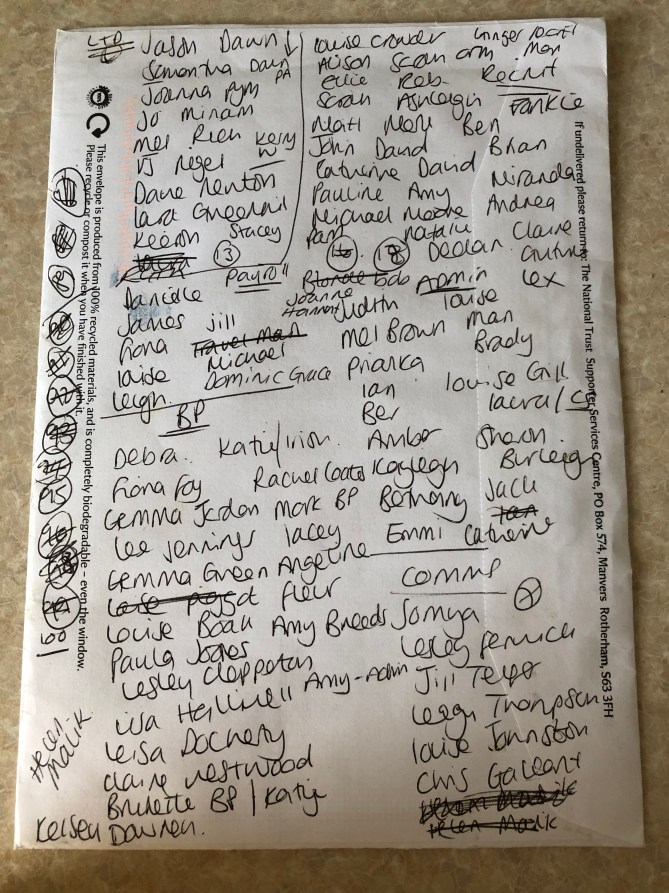 LTD
Jason Dawn
Samantha Dawn PA
Joanna Pym
Jo Miriam
Mel Rich Kerry W
VJ Nigel
Dave Newton
Lara Greenhil
Kieron Stacey
13
Louise Crowder Ginger Recruit
Alison Sarah arm Man
Ellie Rob. Recruit
Sarah Ashleigh Frankie
Matt Mark Ben
John David Brian
Catherine David Miranda
Pauline Amy
Michael Moore Andrea
Pam Natalie Claire
18 Declan
Payroll
Danielle
James Jill
Fiona Travel Man
Louise Michael
Leigh. Dominic Grace
Blonde bob Admin Lex
Joanne
Hannah Judith Louise
Mel Brown Man
Prianka Brady
Ian Louise Gill
Ber Laura/
BP
Debra. Katie/
Fiona Foy Rachel Coats
Gemma Jordan Mark BP
Lee Jennings Lacey
Gemma Green Angeline
Fleur
Louise Boan Amy Breeds
Paula Jones
Lesley Clappaton
Amy-Admin
Lisa Hallinell
Leisa Docherty
Claire Westwood
Brunette BP/Katie
Kelsey Dawnen.
Helen Malik
Amber Sharon
Kayleigh Burleigh
Bethanny Jack
Ian
Emmi Catherine
Comms 7
Somya
Lesley Fenwick
Jill Teyo
Leigh Thompson
Louise Johnston
Chris Gallant
Helen Malik
Helen Malik
This envelope is produced from 100% recycled materials, and is completely biodegradable – even the window.
Please recycle or compost it when you have finished with it.
If undelivered please return to: The National Trust Supporter Services Centre, PO Box 574, Manvers Rotherham, S63 3FH